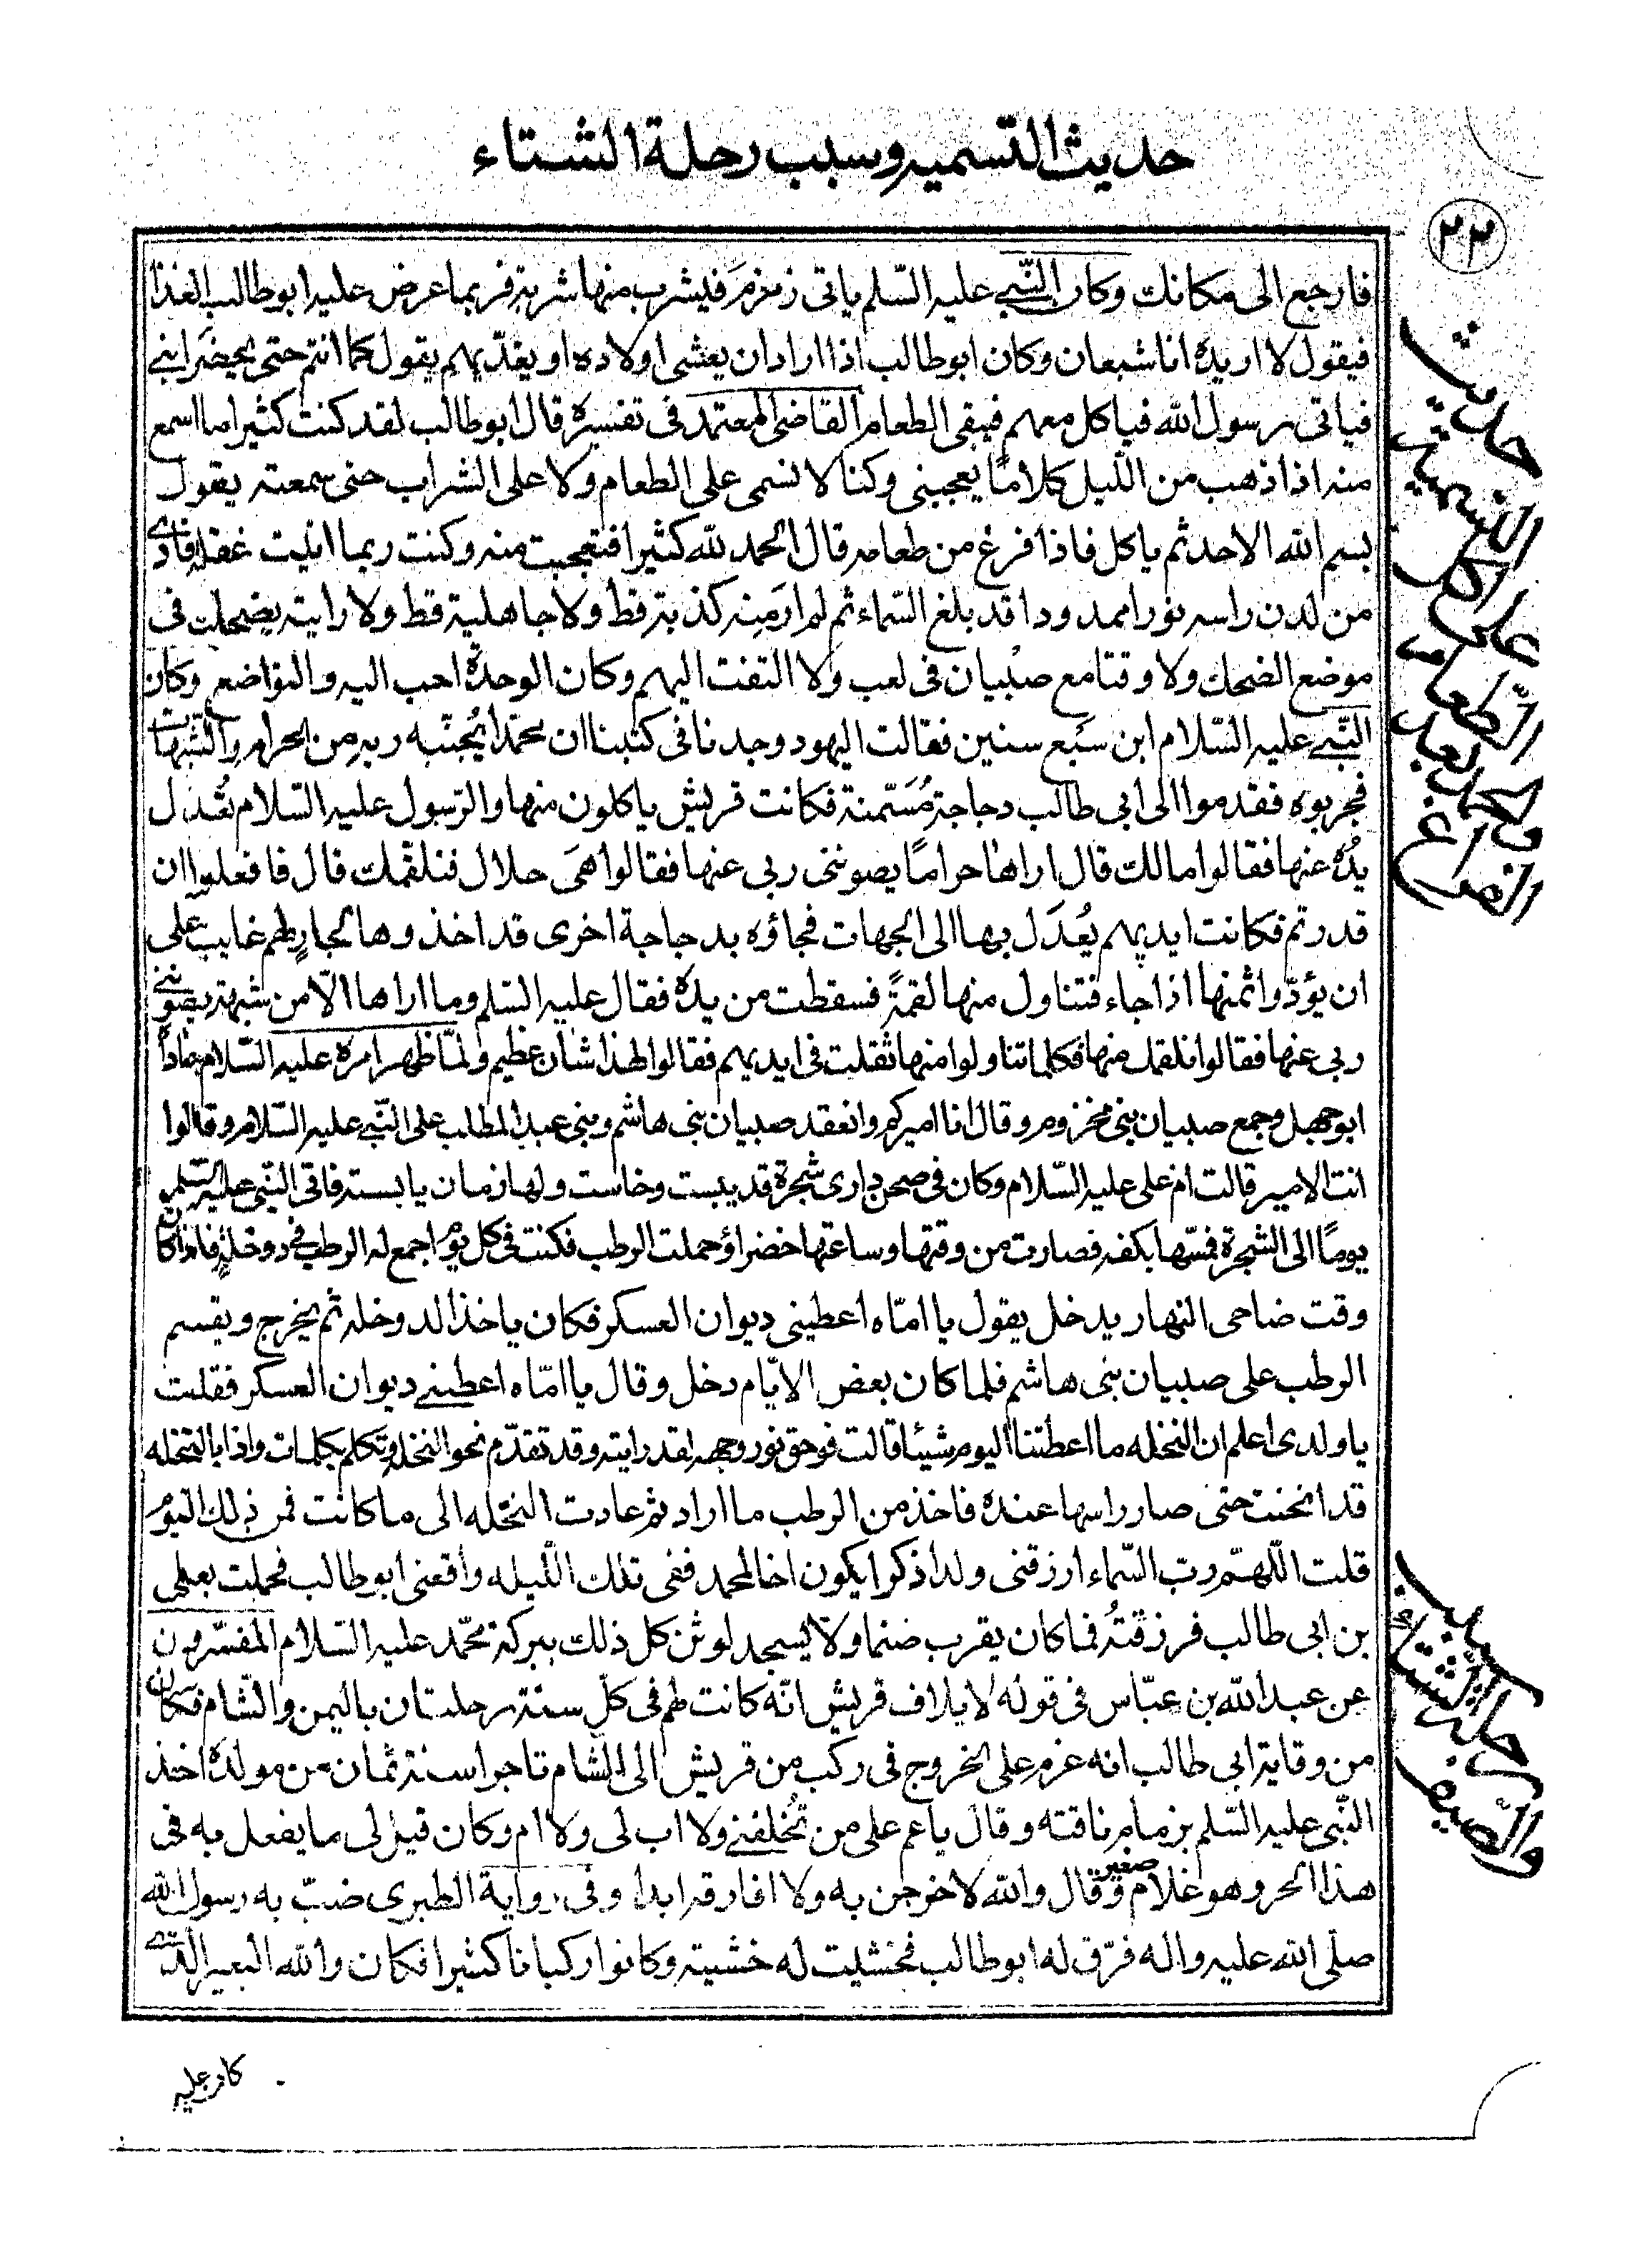 حديث التسميه وسبب رحلة الشتاء
٢٢
فارجع الى مكانك وكان النبي عليه السلم ياتى زمزم فيشرب منها شربة فربما عرض عليه ابوطالب الغذا
فيقول لا اريده انا شبعان وكان ابوطالب اذا اراد ان يعشى اولاده او يغديهم يقول كما انتم حتى يحضر ابني
فياتى رسول الله فياكل معهم فيبقى الطعام القاضى المعتمد فى تفسيره قال ابوطالب لقد كنت كثيرا ما اسمع
منه اذا ذهب من الليل كلاما يعجبنى وكنا لا نسمى على الطعام ولا على الشراب حتى سمعته يقول
بسم الله الاحد ثم ياكل فاذا فرغ من طعامه قال الحمد لله كثيرا فتعجبت منه وكنت ربما اتيت غفلة فارى
من لدن راسه نورا ممدودا قد بلغ السماء ثم لم ار منه كذبة قط ولا جاهلية قط ولا رايته يضحك فى
موضع الضحك ولا وقتا مع صبيان فى لعب ولا التفت اليهم وكان الوحدة احب اليه والتواضع وكان
النبي عليه السلام ابن سبع سنين فقالت اليهود وجدنا فى كتبنا ان محمدا يجنبه ربه من الحرام والشبهات
فجربوه فقدموا الى ابى طالب دجاجة مسمنة فكانت قريش ياكلون منها والرسول عليه السلام تعدل
يده عنها فقالوا مالك قال اراها حراما يصوننى ربى عنها فقالوا هى حلال فنلقمك قال فافعلوا ان
قدرتم فكانت ايديهم يعدل بها الى الجهات فجاؤه بدجاجة اخرى قد اخذوها لجار لهم غايب على
ان يؤدوا ثمنها اذا جاء فتناول منها لقمة فسقطت من يده فقال عليه السلم وما اراها الا من شبهة يصوننى
ربى عنها فقالوا نلقمك منها فكلما تناولوا منها ثقلت فى ايديهم فقالوا لهذا شان عظيم ولما ظهر امره عليه السلام عاداه
ابوجهل وجمع صبيان بنى مخزوم وقال انا اميركم وانعقد صبيان بنى هاشم وبنى عبد المطلب على النبي عليه السلام وقالوا
انت الامير قالت ام على عليه السلام وكان فى صحن دارى شجرة قد يبست وخاست ولها زمان يابسة فاتى النبى عليه السلم
يوما الى الشجرة فمسها بكفه فصارت من وقتها وساعتها خضراؤ حملت الرطب فكنت فى كل يوم اجمع له الرطب فى دوخلة فاذا كان
وقت ضاحى النهار يدخل يقول يا اماه اعطينى ديوان العسكر فكان ياخذ الدوخله ثم يخرج ويقسم
الرطب على صبيان بنى هاشم فلما كان بعض الايام دخل وقال يا اماه اعطينى ديوان العسكر فقلت
ياولدى اعلم ان النخله ما اعطتنا اليوم شيئا قالت فوحق نور وجهه لقد رايته وقد تقدم نحو النخلة وتكلم بكلمات واذا بالنخله
قد انحنت حتى صار راسها عنده فاخذ من الرطب ما اراد ثم عادت النخله الى ما كانت فمن ذلك اليوم
قلت اللهم رب السماء ارزقنى ولدا ذكرا يكون اخا لمحمد ففى تلك الليله واقعنى ابوطالب فحملت بعلى
بن ابى طالب فرزقته فما كان يقرب صنما ولا يسجد لوثن كل ذلك ببركة محمد عليه السلام المفسرون
عن عبد الله بن عباس فى قوله لايلاف قريش انه كانت لهم فى كل سنة رحلتان باليمن والشام فكان
من وقاية ابى طالب انه عزم على الخروج فى ركب من قريش الى الشام تاجرا سنة ثمان من مولده اخذ
النبى عليه السلم بزمام ناقته وقال ياعم على من تخلفنى ولا اب لى ولا ام وكان قيل لى ما يفعل به فى
هذا الحر وهو غلام صغير فرق قال والله لاخرجن به ولا افارقه ابدا وفى رواية الطبرى ضب به رسول الله
صلى الله عليه واله فرق له ابوطالب فخشيت له خشية وكانوا ركبانا كثيرا فكان والله البعير الذى
حديث التسمية على اكل الطعام والحمد بعد الفراغ
سبب رحلة الشتاء والصيف
كان عليه